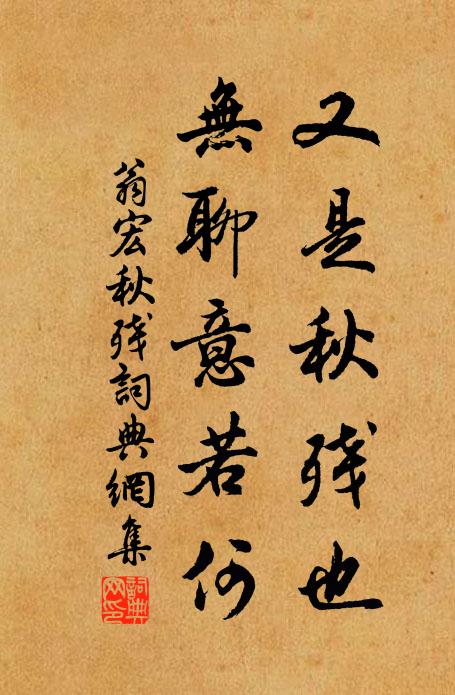 又是秋残也
無聊意若何
翁宏秋残詞典網集
詞典
网印